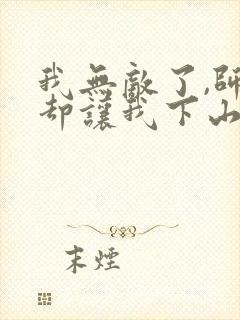 我無敵了,師
却讓我下山
末煙